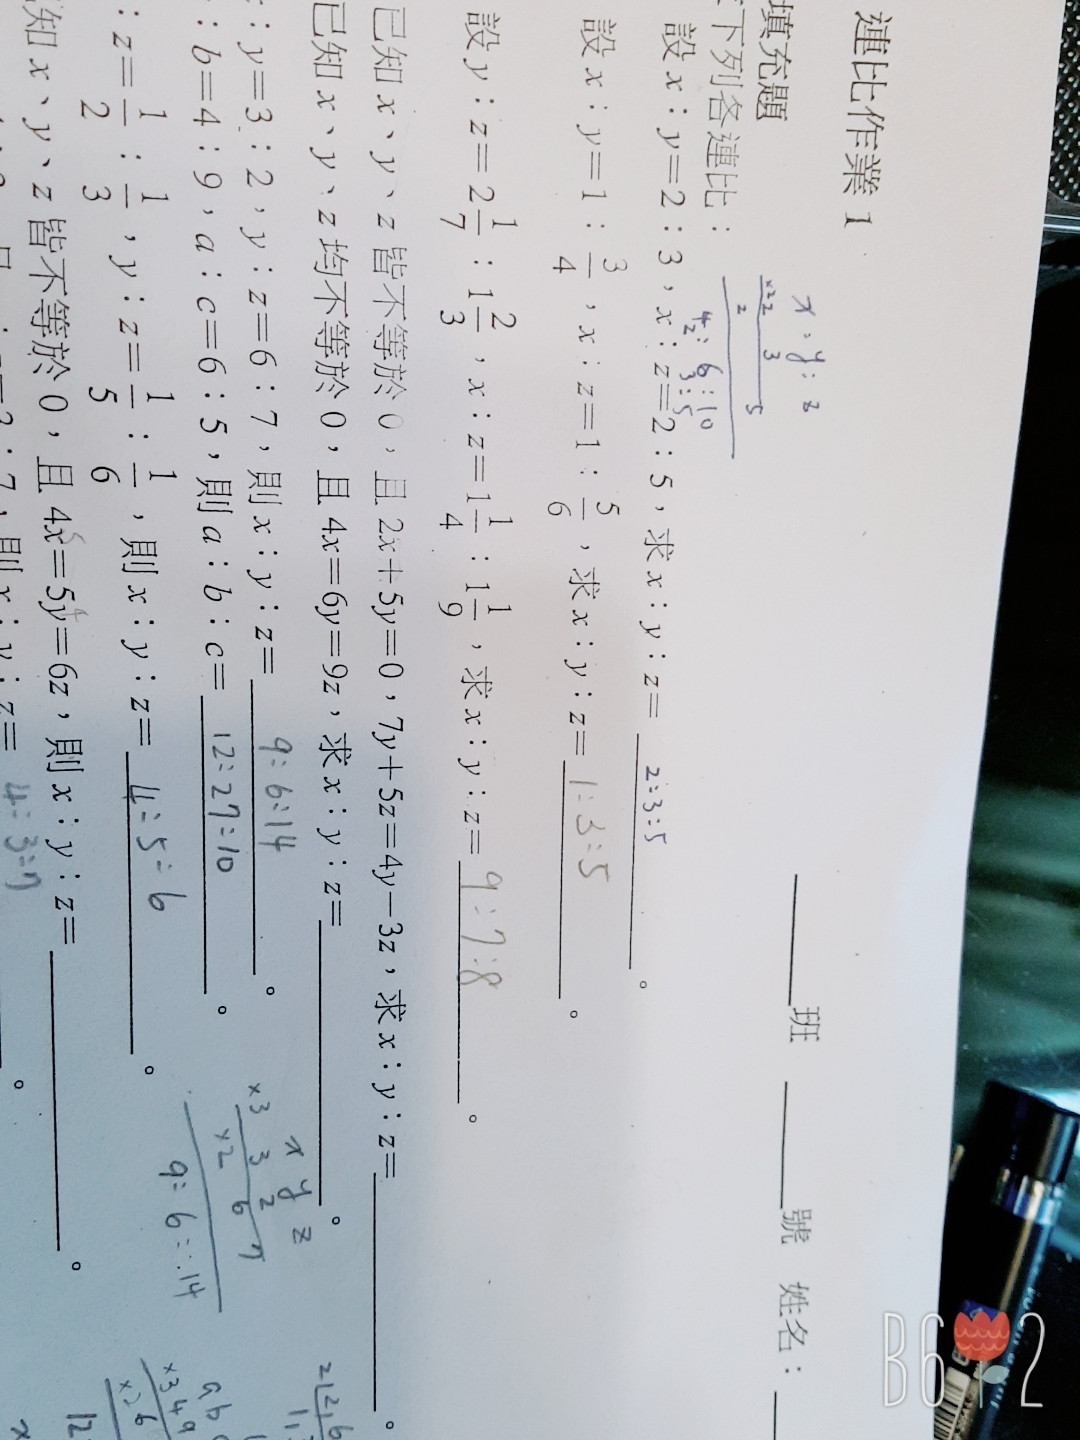 連比作業 1
班 號 姓名：
填充題
下列各連比：
x : y : z
×2 2 3
2 5
4 : 6 : 10
2 : 3 : 5
設 x：y＝2：3，x：z＝2：5，求 x：y：z＝ 2:3:5 。
設 x：y＝1：3/4，x：z＝1：5/6，求 x：y：z＝ 1:3:5 。
設 y：z＝2 1/7：1 2/3，x：z＝1 1/4：1 1/9，求 x：y：z＝ 9:7:8 。
已知 x、y、z 皆不等於 0，且 2x＋5y＝0，7y＋5z＝4y－3z，求 x：y：z＝ 。
已知 x、y、z 均不等於 0，且 4x＝6y＝9z，求 x：y：z＝ 。
：y＝3：2，y：z＝6：7，則 x：y：z＝ 9:6:14 。
：b＝4：9，a：c＝6：5，則 a：b：c＝ 12:27:10 。
：z＝1/2：1/3，y：z＝1/5：1/6，則 x：y：z＝ 4:5:6 。
知 x、y、z 皆不等於 0，且 4x＝5y＝6z，則 x：y：z＝ 。
：7，則 x：y：z＝ 4:3:7 。
x y z
×3 3 2
×2 6 7
9 : 6 : 14
a b
×3 4 9
×2 6
12:
B6 2